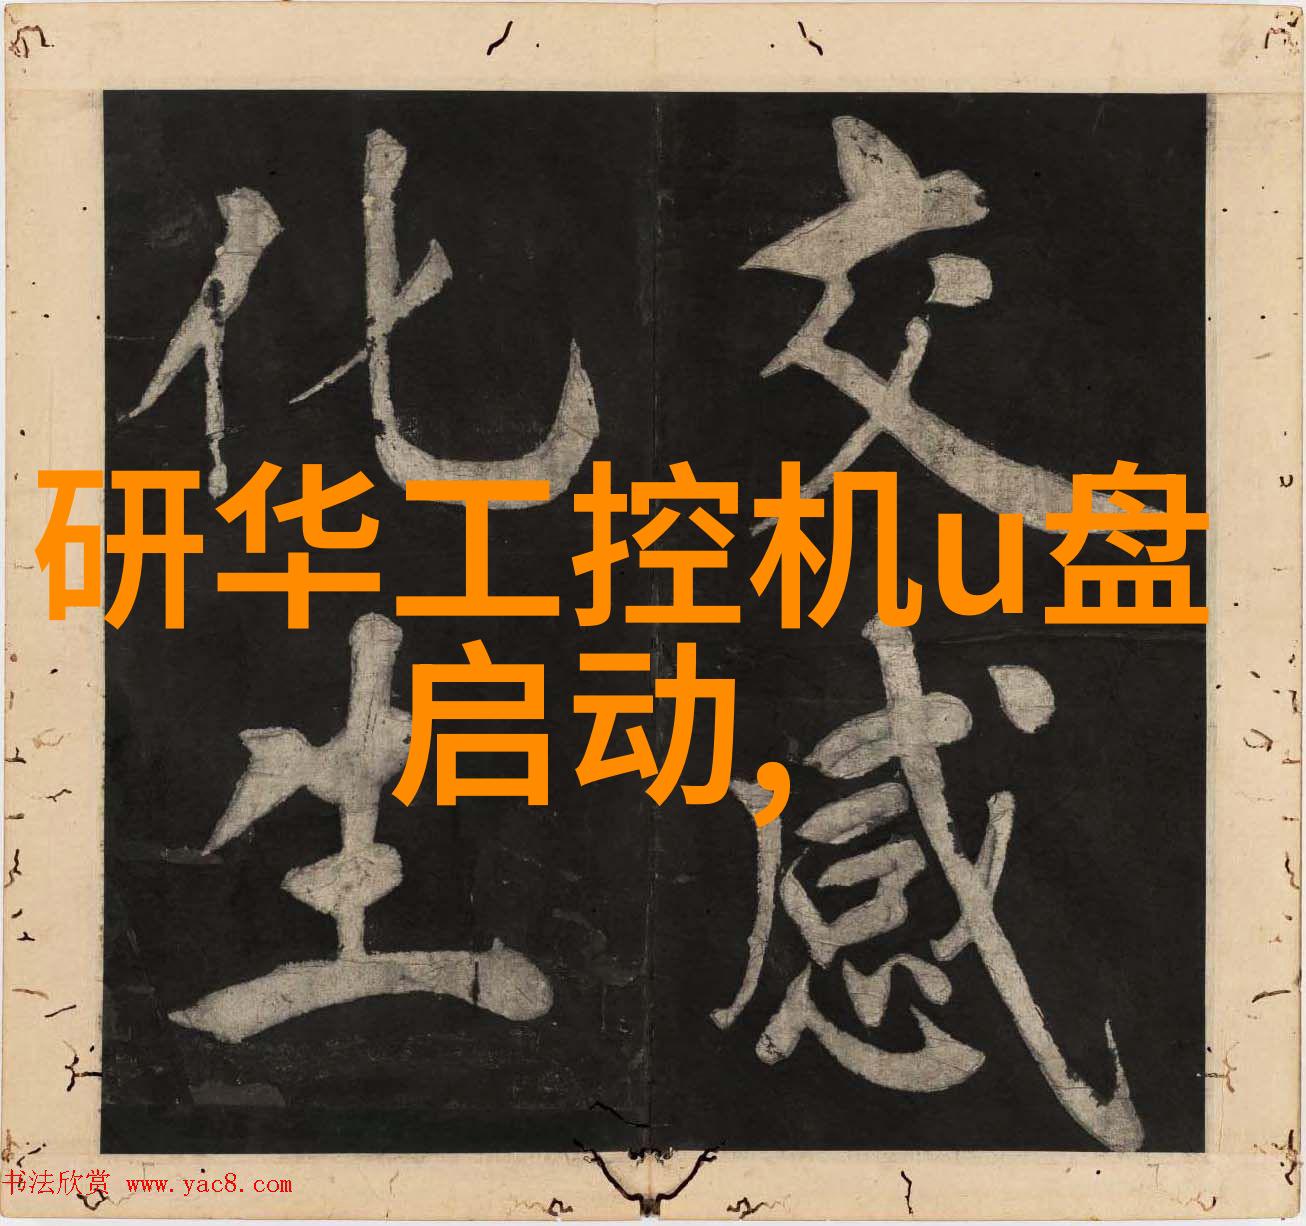 交感
化生
研华工控机u盘
启动,
书法欣赏 www.yac8.com